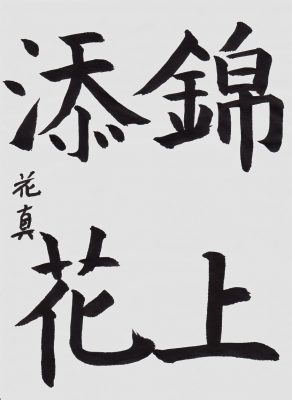 錦上
添花
花真